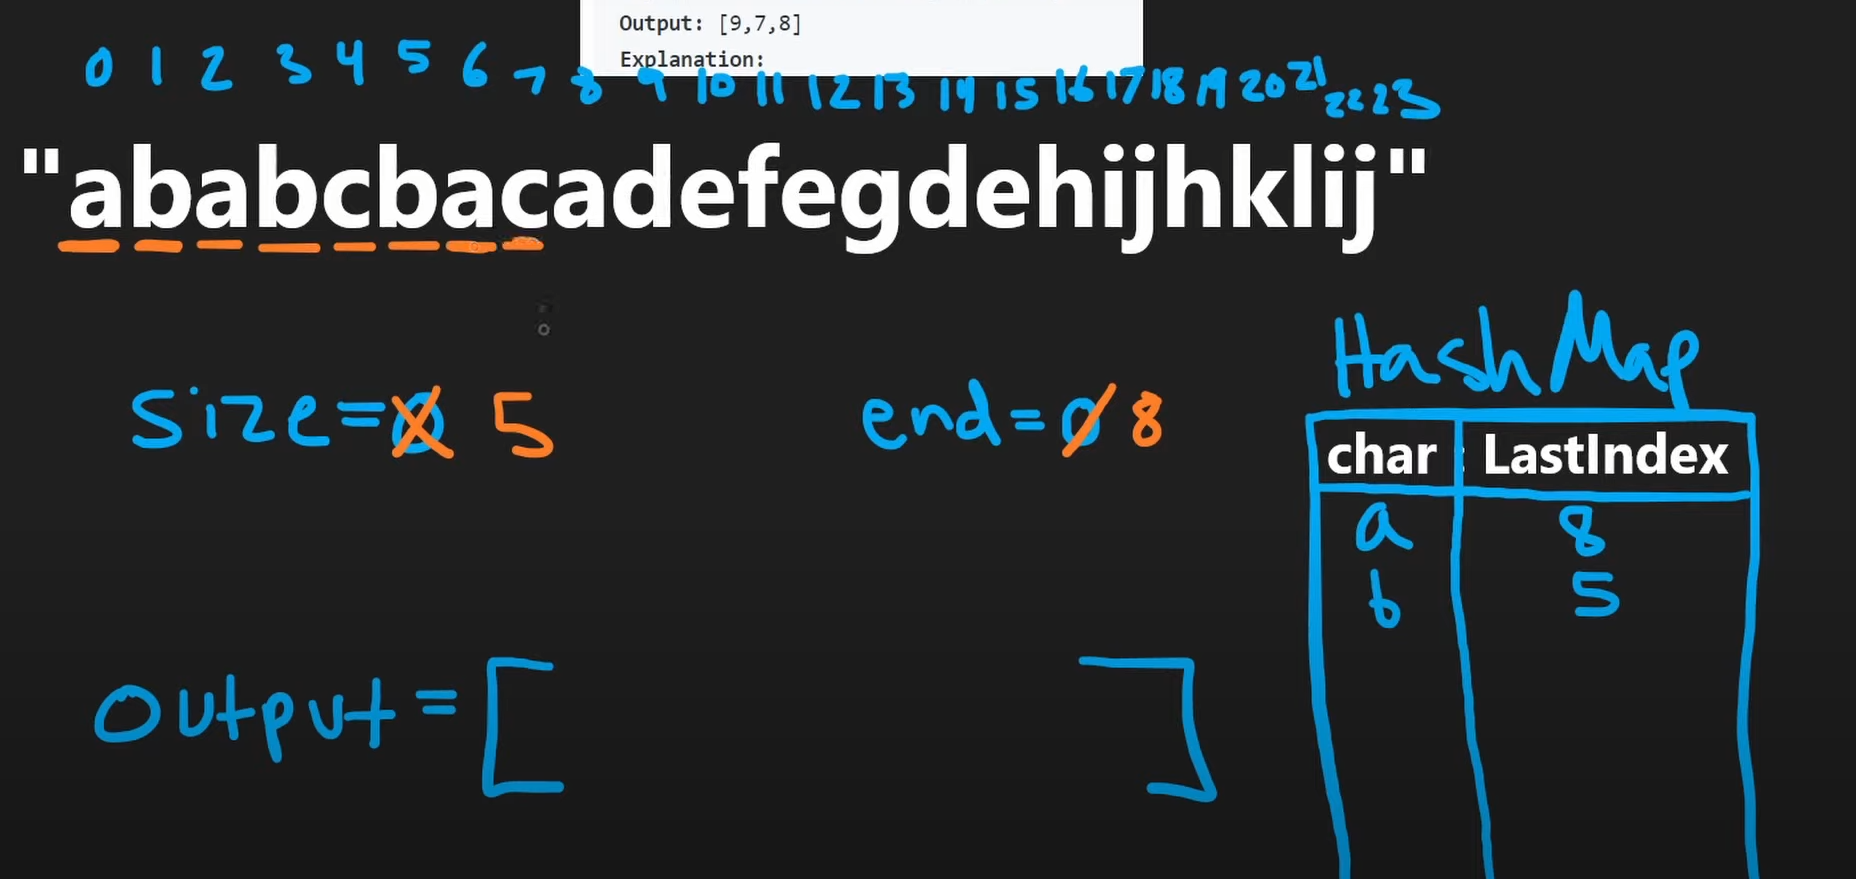 Output: [9,7,8]
Explanation:
0 1 2 3 4 5 6 7 8 9 10 11 12 13 14 15 16 17 18 19 20 21 22 23
"ababcbacadefegdehijhklij"
size=0 5
end=0 8
HashMap
char : LastIndex
a 8
b 5
output=[ ]